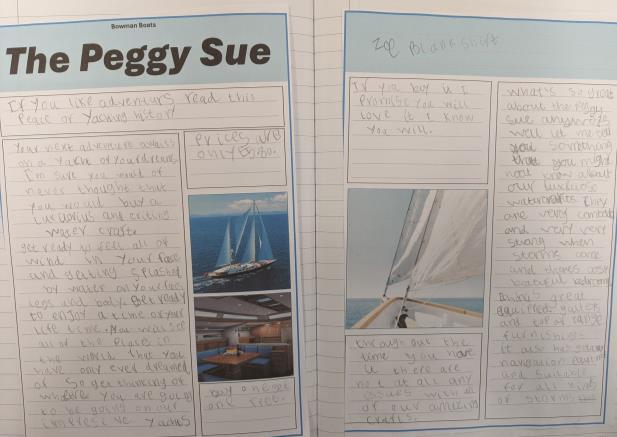 Bowman Boats
The Peggy Sue
If you like adventurs read this
Peace of Yaching history
Your next adventure awaits
on a Yacht of Your dreams.
I'm sure you would of
never thought that
you would buy a
luxurius and
water craft
get ready to feel all of
wind in Your Face
and getting splashed
by water on your feet
legs and body. Get ready
to enjoy a time of your
life time. You will see
all of the Place in
the world that you
have only ever dreamed
of So get thinking of
where you are going
to be going on our
Yachts
Prices are
only
buy one get
one free.
Zoe Blankshift
If you buy it I
Promise you will
love it I know
you will.
through out the
time you have
it there are
not at all any
issues with
of our amazing
crafts.
what's so great
about the Peggy
Sue anyway
well let me tell
you something
that you might
not know about
our
watercrafts They
are very
and very very
strong when
storms come
and
beautiful bedrooms
great
and top of range
furnishings
it also has
navigation
and suitable
for all kinds
of storms